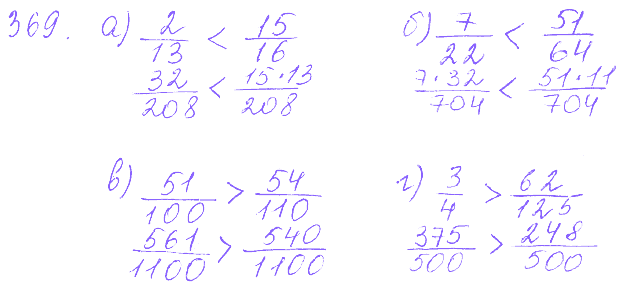 369. а) 2/13 < 15/16
32/208 < 15·13/208
б) 7/22 < 51/64
7·32/704 < 51·11/704
в) 51/100 > 54/110
561/1100 > 540/1100
г) 3/4 > 62/125
375/500 > 248/500